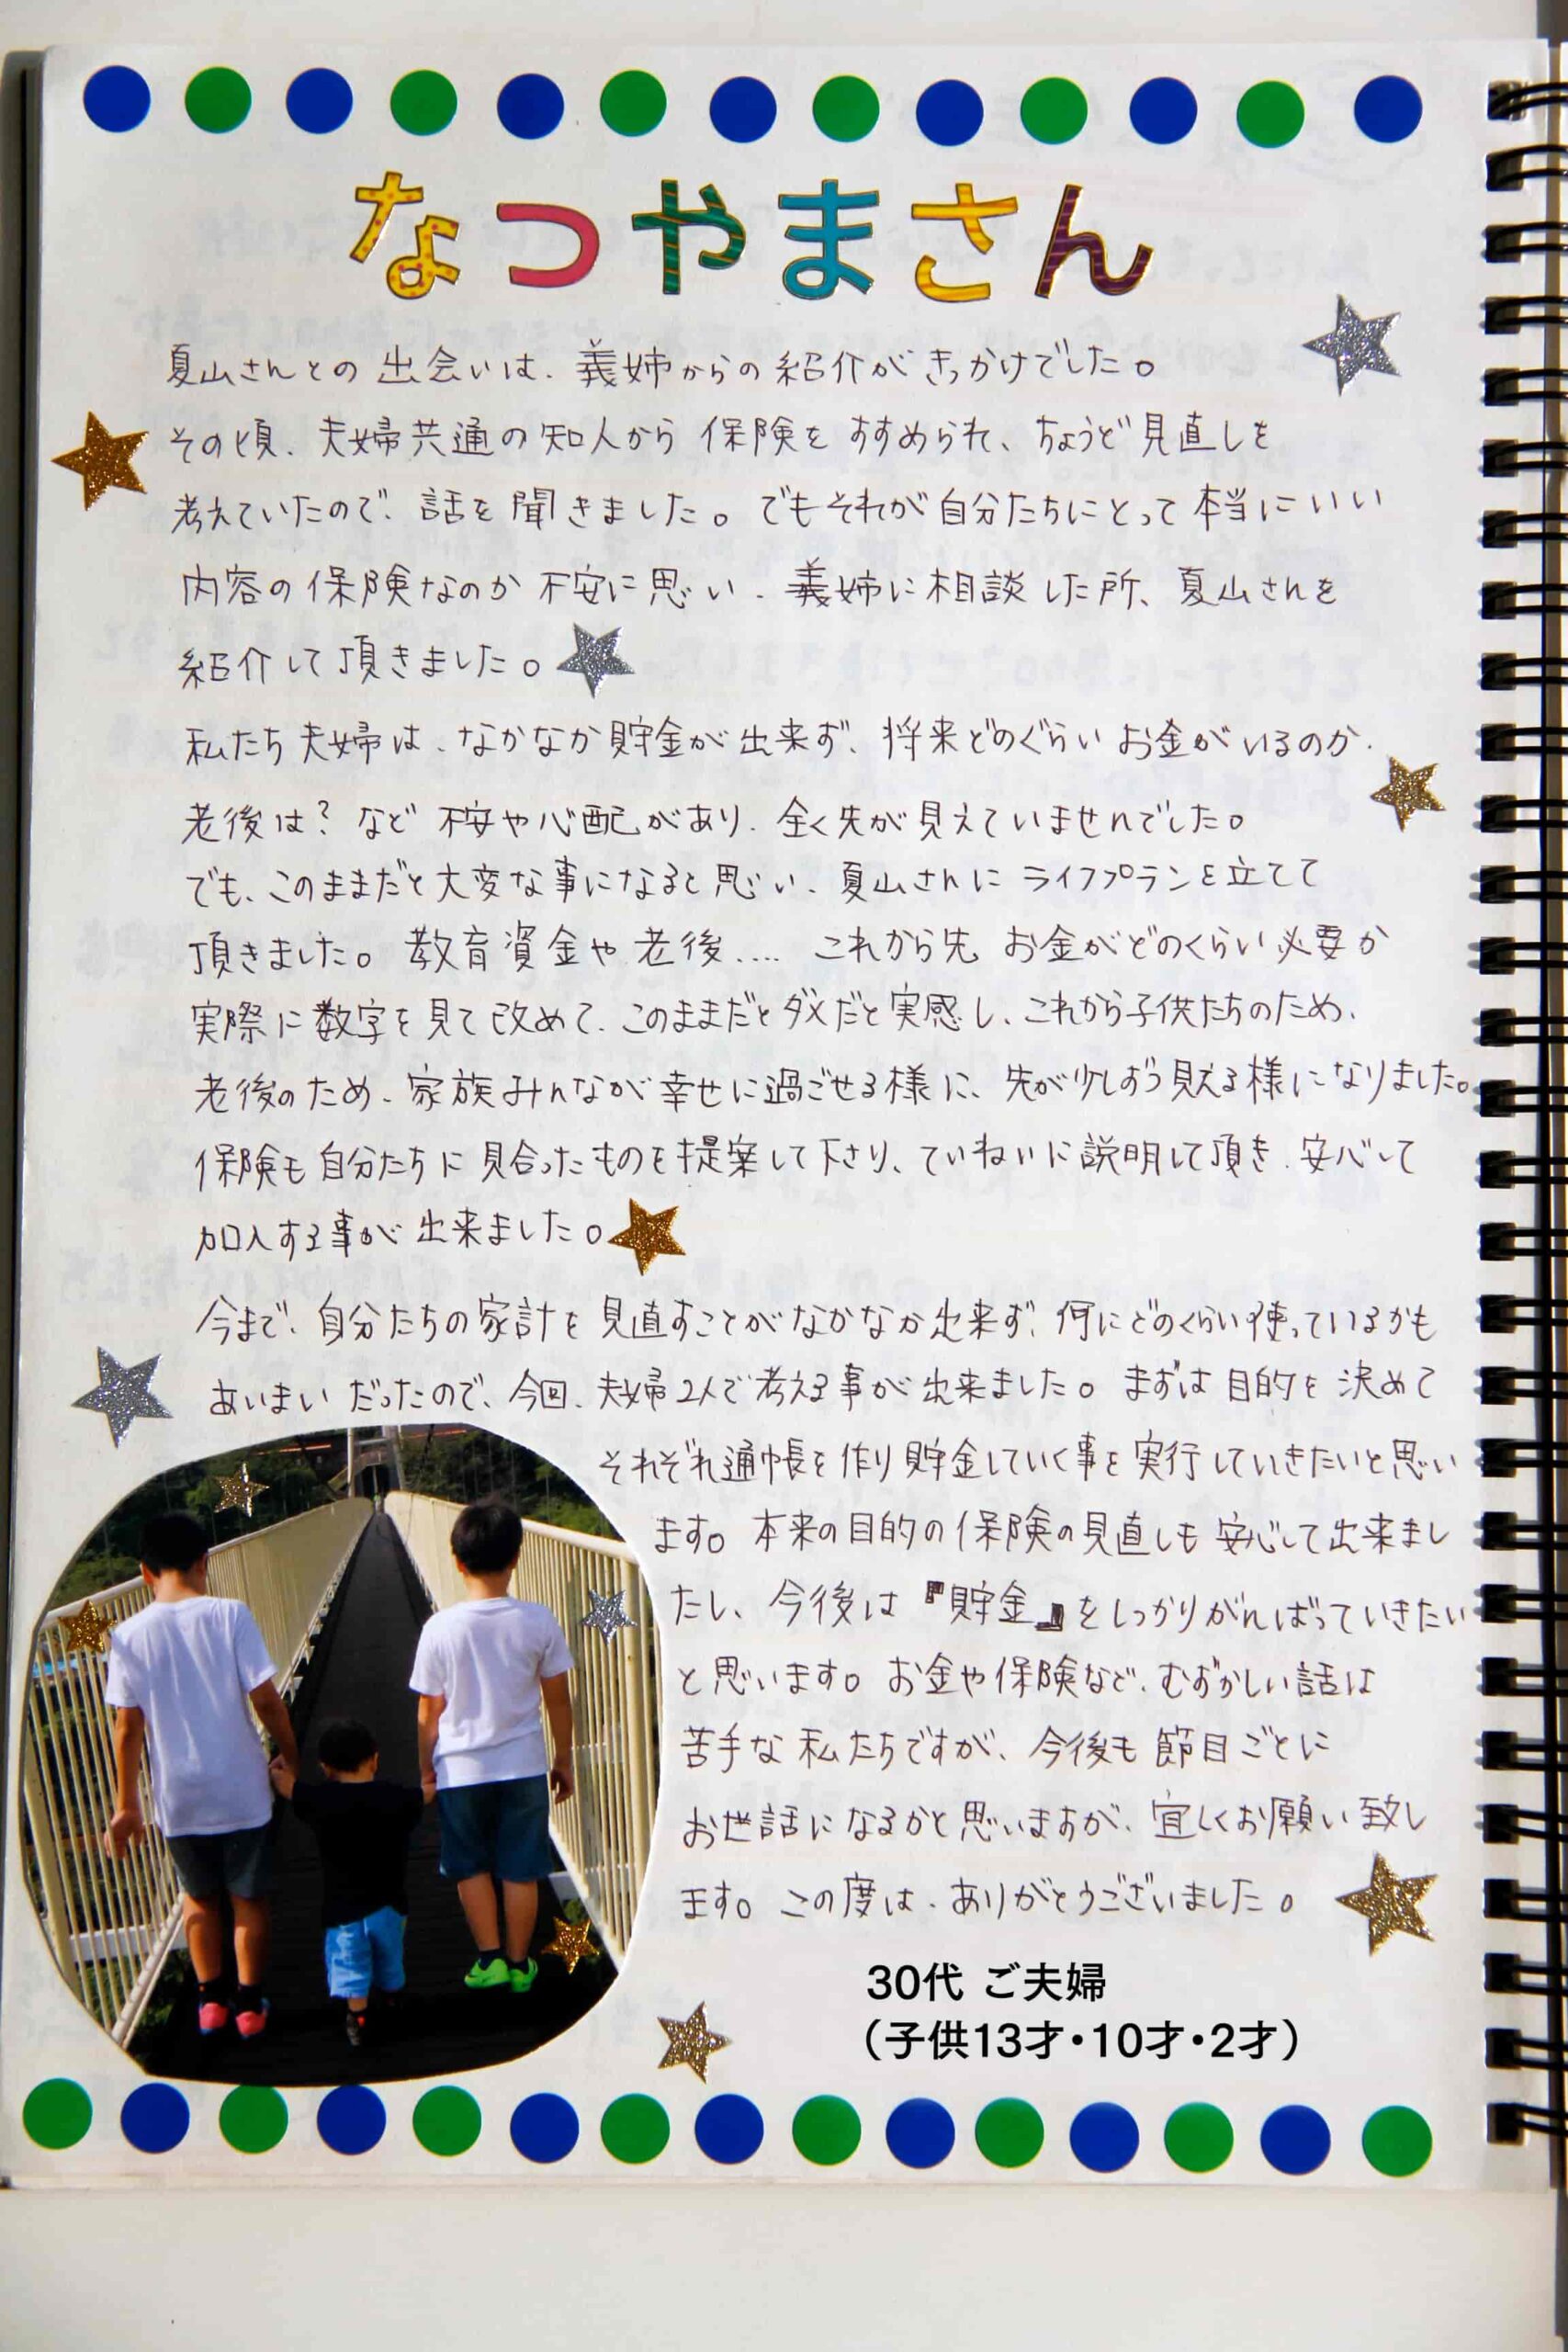 なつやまさん
夏山さんとの出会いは、義姉からの紹介がきっかけでした。
その頃、夫婦共通の知人から保険をすすめられ、ちょうど見直しを
考えていたので、話を聞きました。でもそれが自分たちにとって本当にいい
内容の保険なのか不安に思い、義姉に相談した所、夏山さんを
紹介して頂きました。
私たち夫婦は、なかなか貯金が出来ず、将来どのぐらいお金がいるのか、
老後は?など不安や心配があり、全く先が見えていませんでした。
でも、このままだと大変な事になると思い、夏山さんにライフプランを立てて
頂きました。教育資金や老後.... これから先お金がどのくらい必要か
実際に数字を見て改めて、このままだとダメだと実感し、これから子供たちのため、
老後のため、家族みんなが幸せに過ごせる様に、先が少しずつ見える様になりました。
保険も自分たちに見合ったものを提案して下さり、ていねいに説明して頂き、安心して
加入する事が出来ました。
今まで、自分たちの家計を見直すことがなかなか出来ず、何にどのくらい使っているかも
あいまいだったので、今回、夫婦2人で考える事が出来ました。まずは目的を決めて
それぞれ通帳を作り貯金していく事を実行していきたいと思い
ます。本来の目的の保険の見直しも安心して出来まし
たし、今後は『貯金』をしっかりがんばっていきたい
と思います。お金や保険など、むずかしい話は
苦手な私たちですが、今後も節目ごとに
お世話になるかと思いますが、宜しくお願い致し
ます。この度は、ありがとうございました。
30代 ご夫婦
(子供13才・10才・2才)